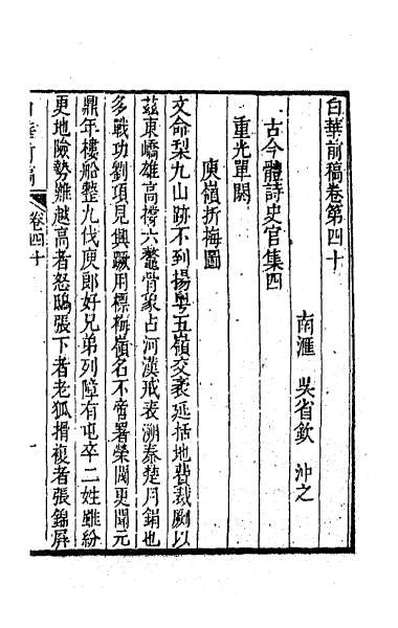 白華前稿卷第四十
南滙 吳省欽 沖之
古今體詩史官集四
重光單閼
庾嶺折梅圖
文命梨九山跡不到揚粵五嶺交袤延括地費裁厥以
茲東嶠雄高撐六鼇骨象占河漢戒袤溯秦楚月銷也
多戰功劉項見興蹶用標梅嶺名不啻署榮閥更聞元
鼎年樓船整九伐庾郎好兄弟列障有屯卒二姓雖紛
更地險勢難越高者怒鴟張下者老狐搰複者張錦屏
白華前稿
卷四十
一